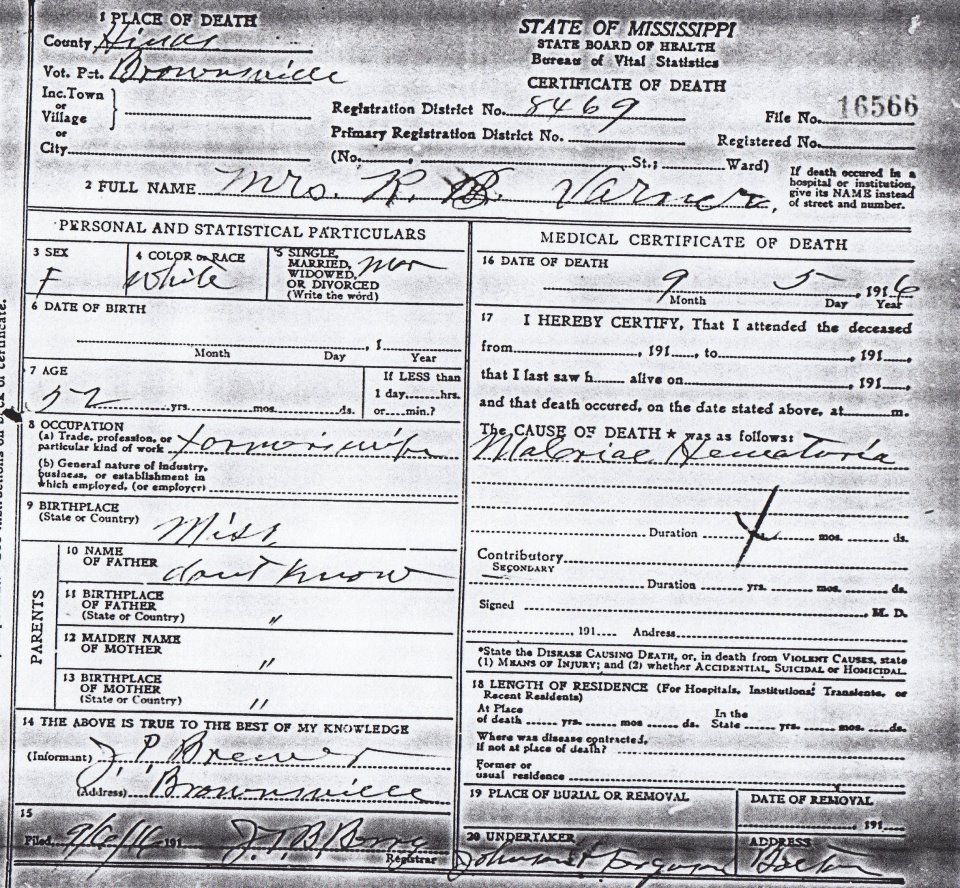 1 PLACE OF DEATH
County Hinds
Vot. Pct. Brownsville
Inc. Town
or
Village
or
City
STATE OF MISSISSIPPI
STATE BOARD OF HEALTH
Bureau of Vital Statistics
CERTIFICATE OF DEATH
Registration District No. 8469
File No. 16566
Primary Registration District No.
Registered No.
(No. , St.; Ward)
If death occured in a
hospital or institution,
give its NAME instead
of street and number.
2 FULL NAME Mrs. R. B. Varner.
PERSONAL AND STATISTICAL PARTICULARS
3 SEX
F
4 COLOR or RACE
White
5 SINGLE,
MARRIED,
WIDOWED,
OR DIVORCED
(Write the word)
mar
6 DATE OF BIRTH
, 1
Month Day Year
7 AGE
52 yrs. mos. ds.
If LESS than
1 day, hrs.
or min.?
8 OCCUPATION
(a) Trade, profession, or
particular kind of work farmer's wife
(b) General nature of industry,
business, or establishment in
which employed, (or employer)
9 BIRTHPLACE
(State or Country) Miss
PARENTS
10 NAME
OF FATHER dont know
11 BIRTHPLACE
OF FATHER
(State or Country) "
12 MAIDEN NAME
OF MOTHER "
13 BIRTHPLACE
OF MOTHER
(State or Country) "
14 THE ABOVE IS TRUE TO THE BEST OF MY KNOWLEDGE
(Informant) J. P. Brewer
(Address) Brownsville
15
Filed 9/6/16 191 J. T. B.
Registrar
MEDICAL CERTIFICATE OF DEATH
16 DATE OF DEATH
9 5 , 1916
Month Day Year
17 I HEREBY CERTIFY, That I attended the deceased
from , 191 , to , 191 ,
that I last saw h alive on , 191 ,
and that death occured, on the date stated above, at m.
The CAUSE OF DEATH * was as follows:
Malarial Hematuria
Duration mos. ds.
Contributory
SECONDARY
Duration yrs. mos. ds.
Signed M. D.
191 Andress
*State the DISEASE CAUSING DEATH, or, in death from VIOLENT CAUSES, state
(1) MEANS OF INJURY; and (2) whether ACCIDENTAL, SUICIDAL or HOMICIDAL.
18 LENGTH OF RESIDENCE (For Hospitals, Institutions, Transients, or
Recent Residents)
At Place
of death yrs. mos ds. In the
State yrs. mos. ds.
Where was disease contracted,
if not at place of death?
Former or
usual residence
19 PLACE OF BURIAL OR REMOVAL
DATE OF REMOVAL
191
20 UNDERTAKER
ADDRESS
Bolton